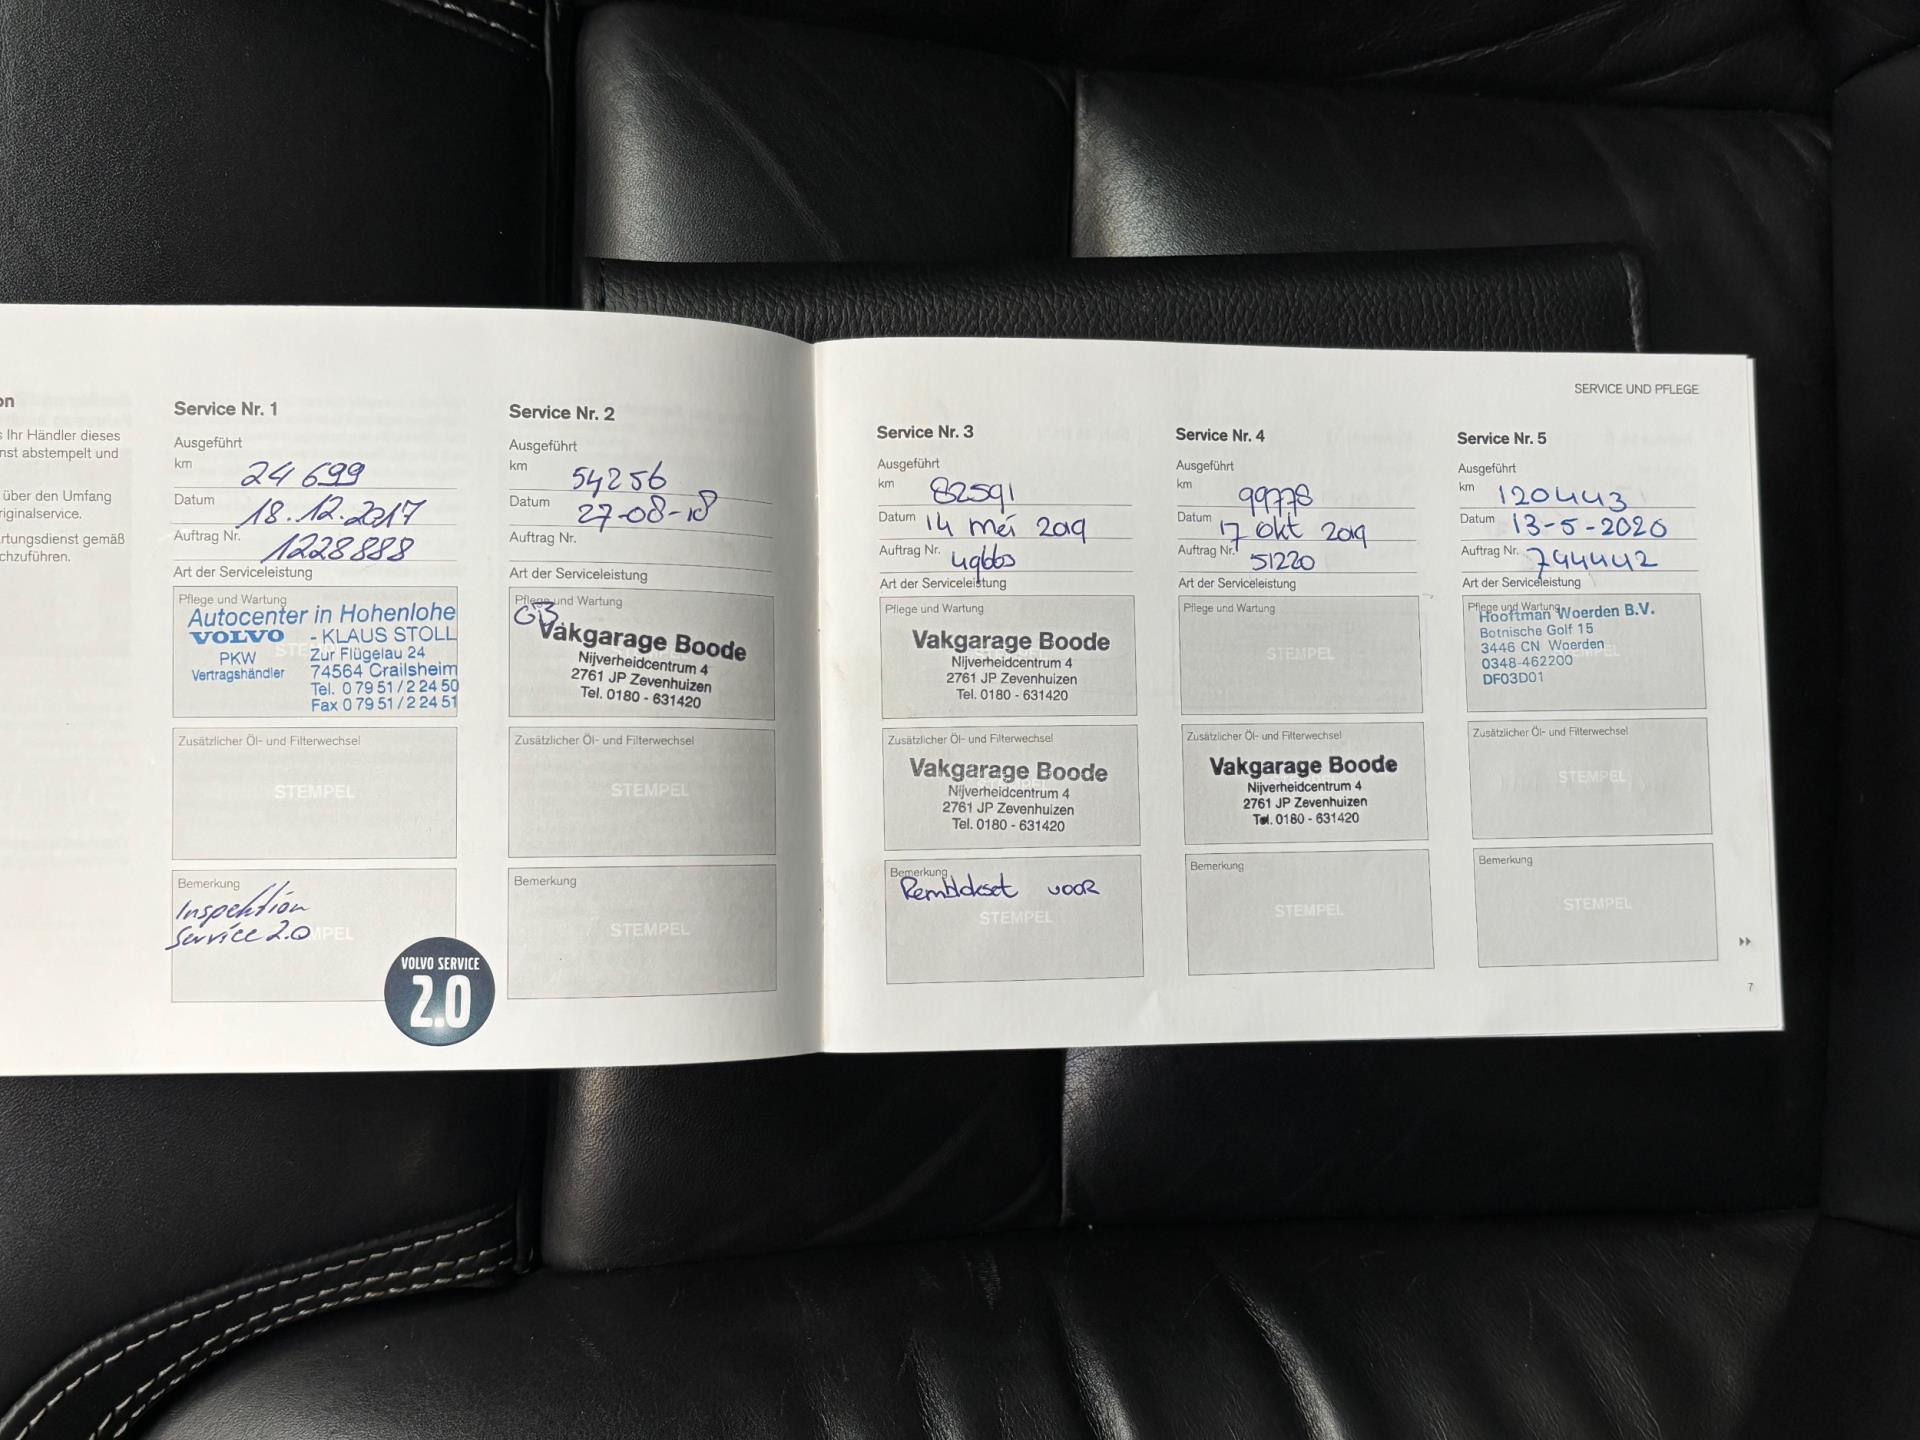 on
s Ihr Händler dieses
nst abstempelt und
über den Umfang
riginalservice.
rtungsdienst gemäß
chzuführen.
Service Nr. 1
Ausgeführt
km 24 699
Datum 18.12.2017
Auftrag Nr. 1228888
Art der Serviceleistung
Pflege und Wartung
Autocenter in Hohenlohe
VOLVO - KLAUS STOLL
PKW Zur Flügelau 24
Vertragshändler 74564 Crailsheim
Tel. 0 79 51 / 2 24 50
Fax 0 79 51 / 2 24 51
Zusätzlicher Öl- und Filterwechsel
STEMPEL
Bemerkung
Inspektion
Service 2.0
VOLVO SERVICE
2.0
Service Nr. 2
Ausgeführt
km 54256
Datum 27-08-18
Auftrag Nr.
Art der Serviceleistung
Pflege und Wartung
Vakgarage Boode
Nijverheidcentrum 4
2761 JP Zevenhuizen
Tel. 0180 - 631420
Zusätzlicher Öl- und Filterwechsel
STEMPEL
Bemerkung
STEMPEL
SERVICE UND PFLEGE
Service Nr. 3
Ausgeführt
km 82591
Datum 14 mei 2019
Auftrag Nr.
Art der Serviceleistung
Pflege und Wartung
Vakgarage Boode
Nijverheidcentrum 4
2761 JP Zevenhuizen
Tel. 0180 - 631420
Zusätzlicher Öl- und Filterwechsel
Vakgarage Boode
Nijverheidcentrum 4
2761 JP Zevenhuizen
Tel. 0180 - 631420
Bemerkung
Remblokset voor
STEMPEL
Service Nr. 4
Ausgeführt
km 99778
Datum 17 okt 2019
Auftrag Nr. 51220
Art der Serviceleistung
Pflege und Wartung
STEMPEL
Zusätzlicher Öl- und Filterwechsel
Vakgarage Boode
Nijverheidcentrum 4
2761 JP Zevenhuizen
Tel. 0180 - 631420
Bemerkung
STEMPEL
Service Nr. 5
Ausgeführt
km 120443
Datum 13-5-2020
Auftrag Nr. 744442
Art der Serviceleistung
Pflege und Wartung
Hooftman Woerden B.V.
Botnische Golf 15
3446 CN Woerden
0348-462200
DF03D01
Zusätzlicher Öl- und Filterwechsel
STEMPEL
Bemerkung
STEMPEL
7